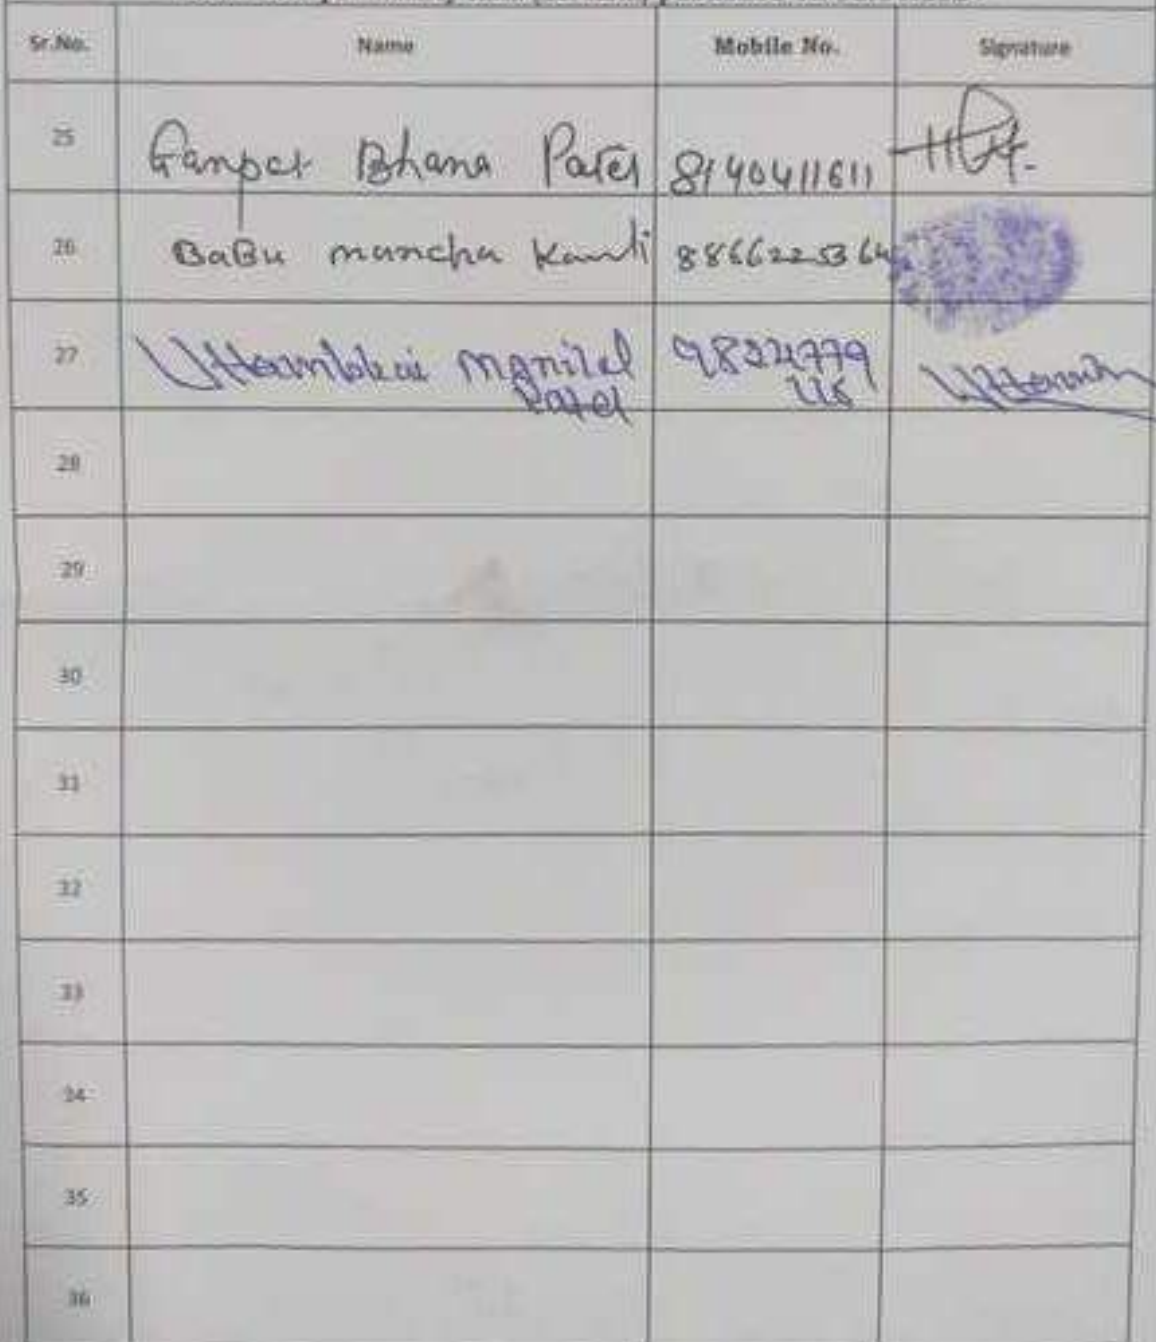 Sr.No. Name Mobile No. Signature
25 Ganpat Bhana Patel 8140411611
26 BaBu mancha 8866225364
27 Uttambhai Manilal
Patel
28
29
30
31
32
33
34
35
36